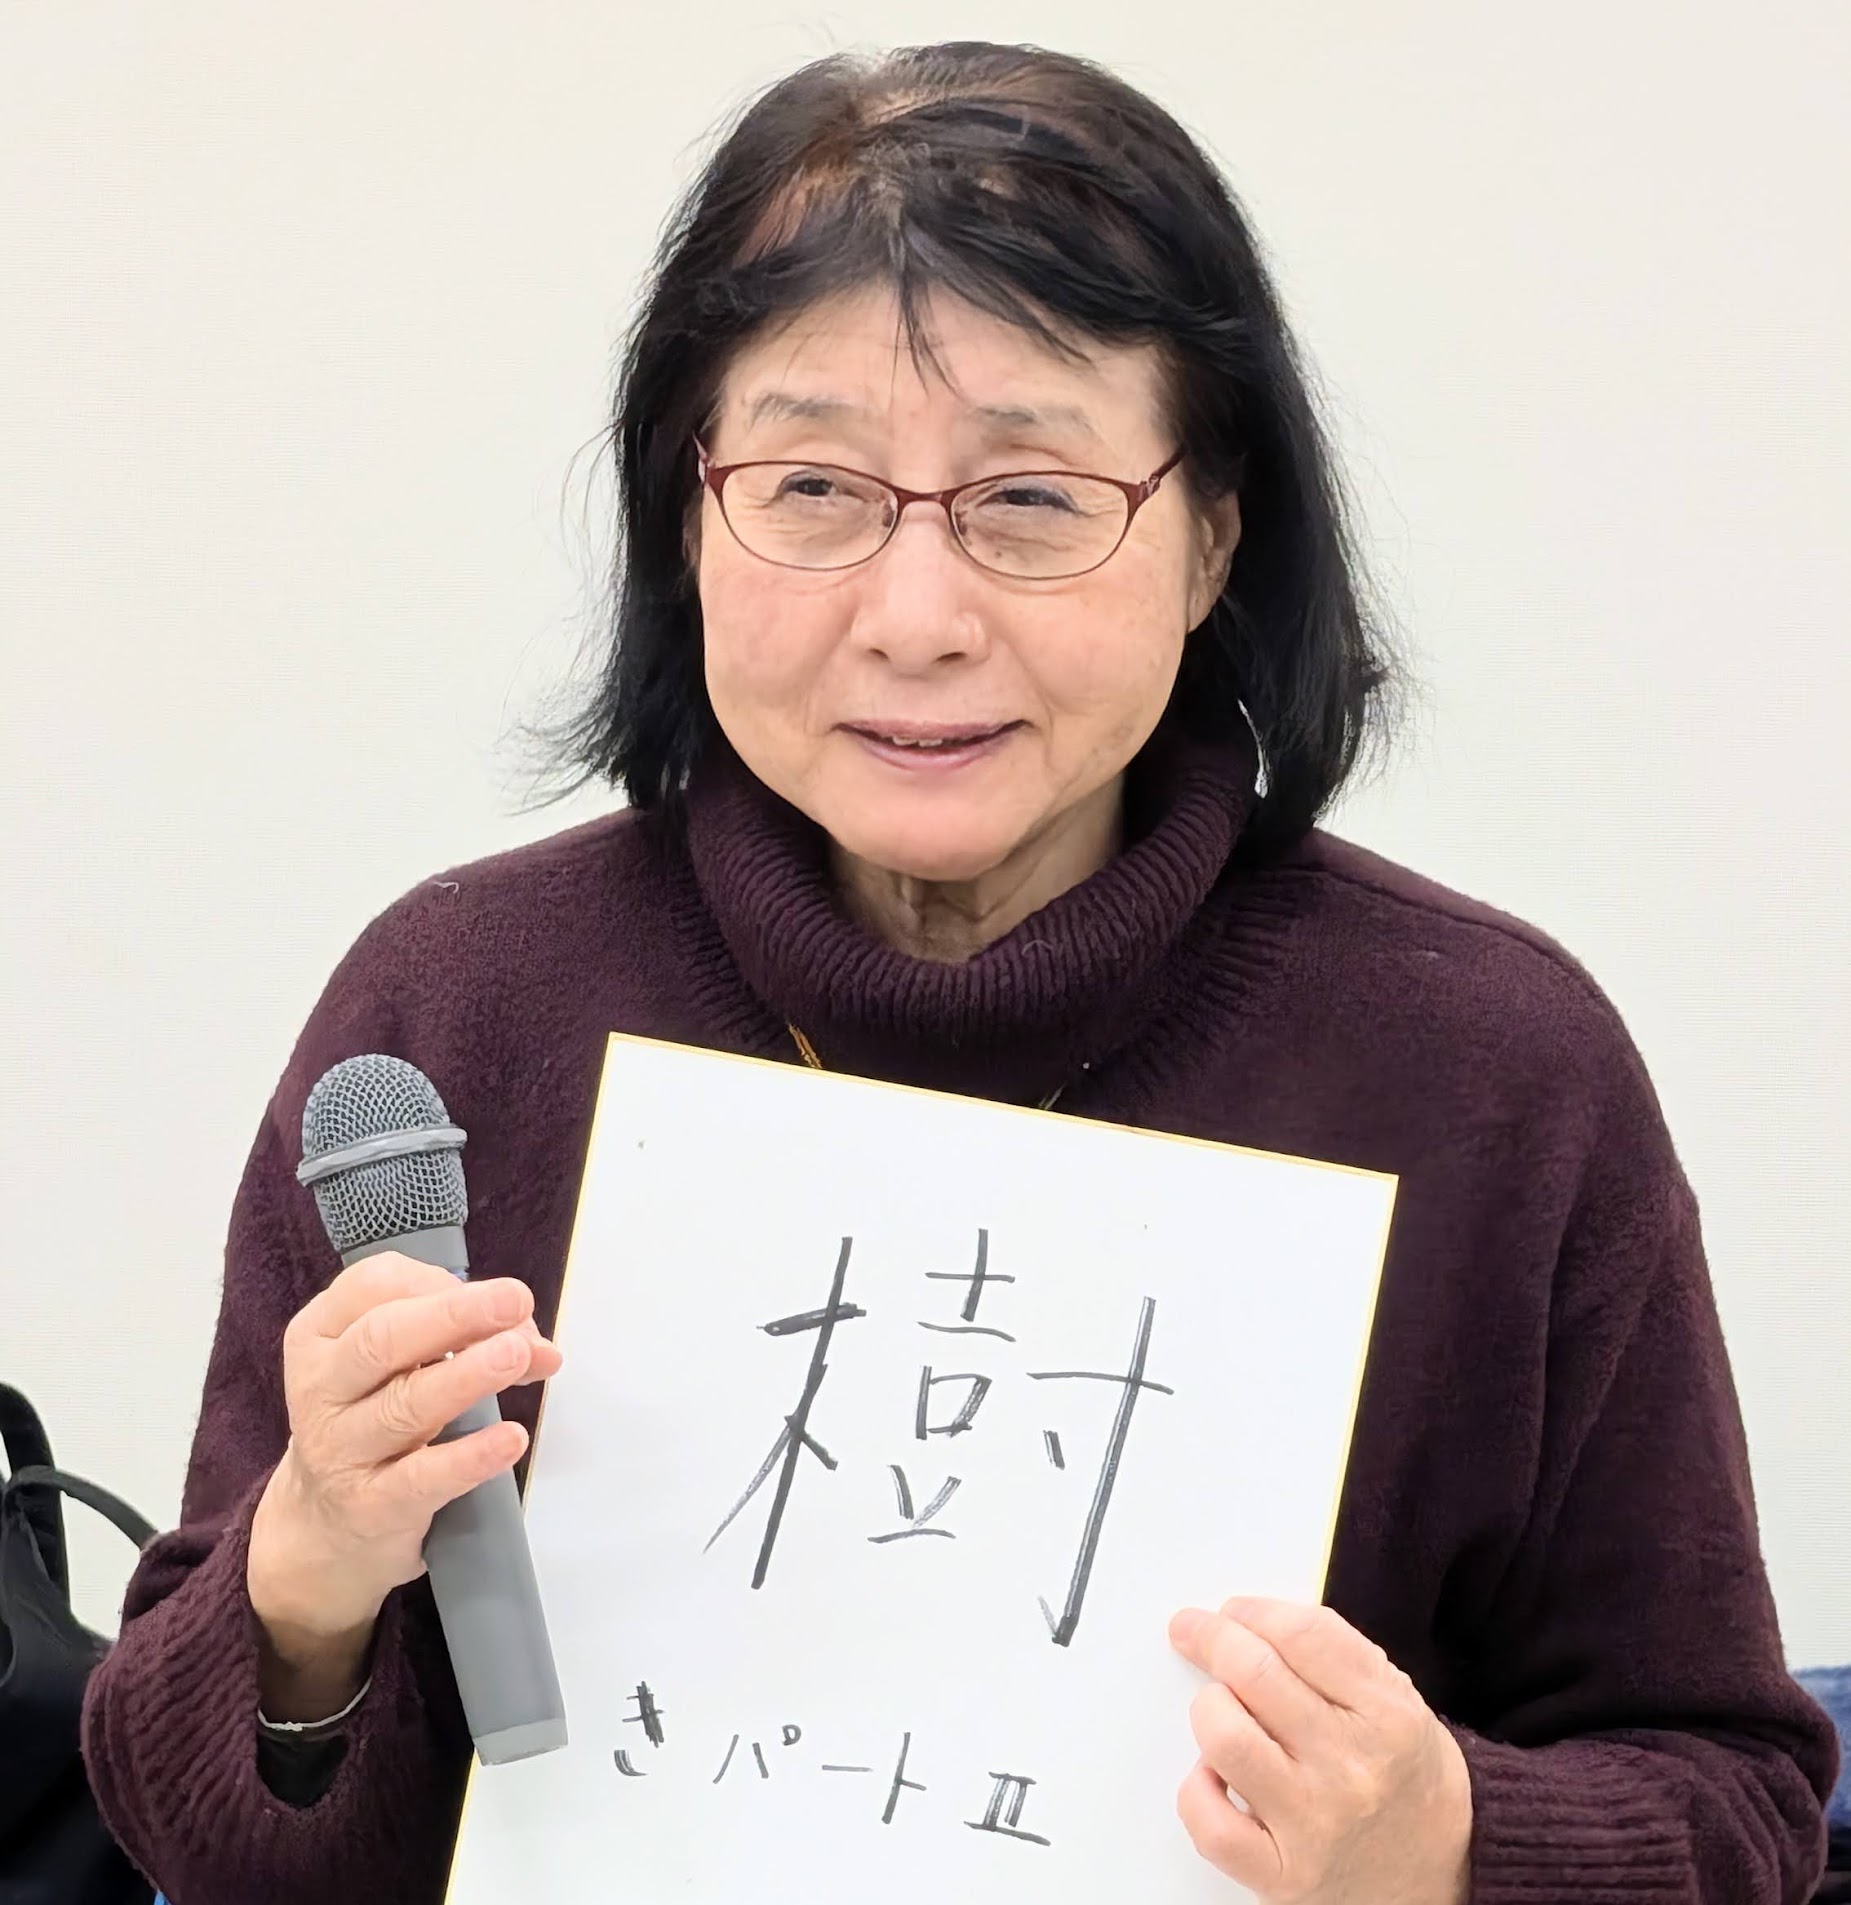 樹
きパートⅡ